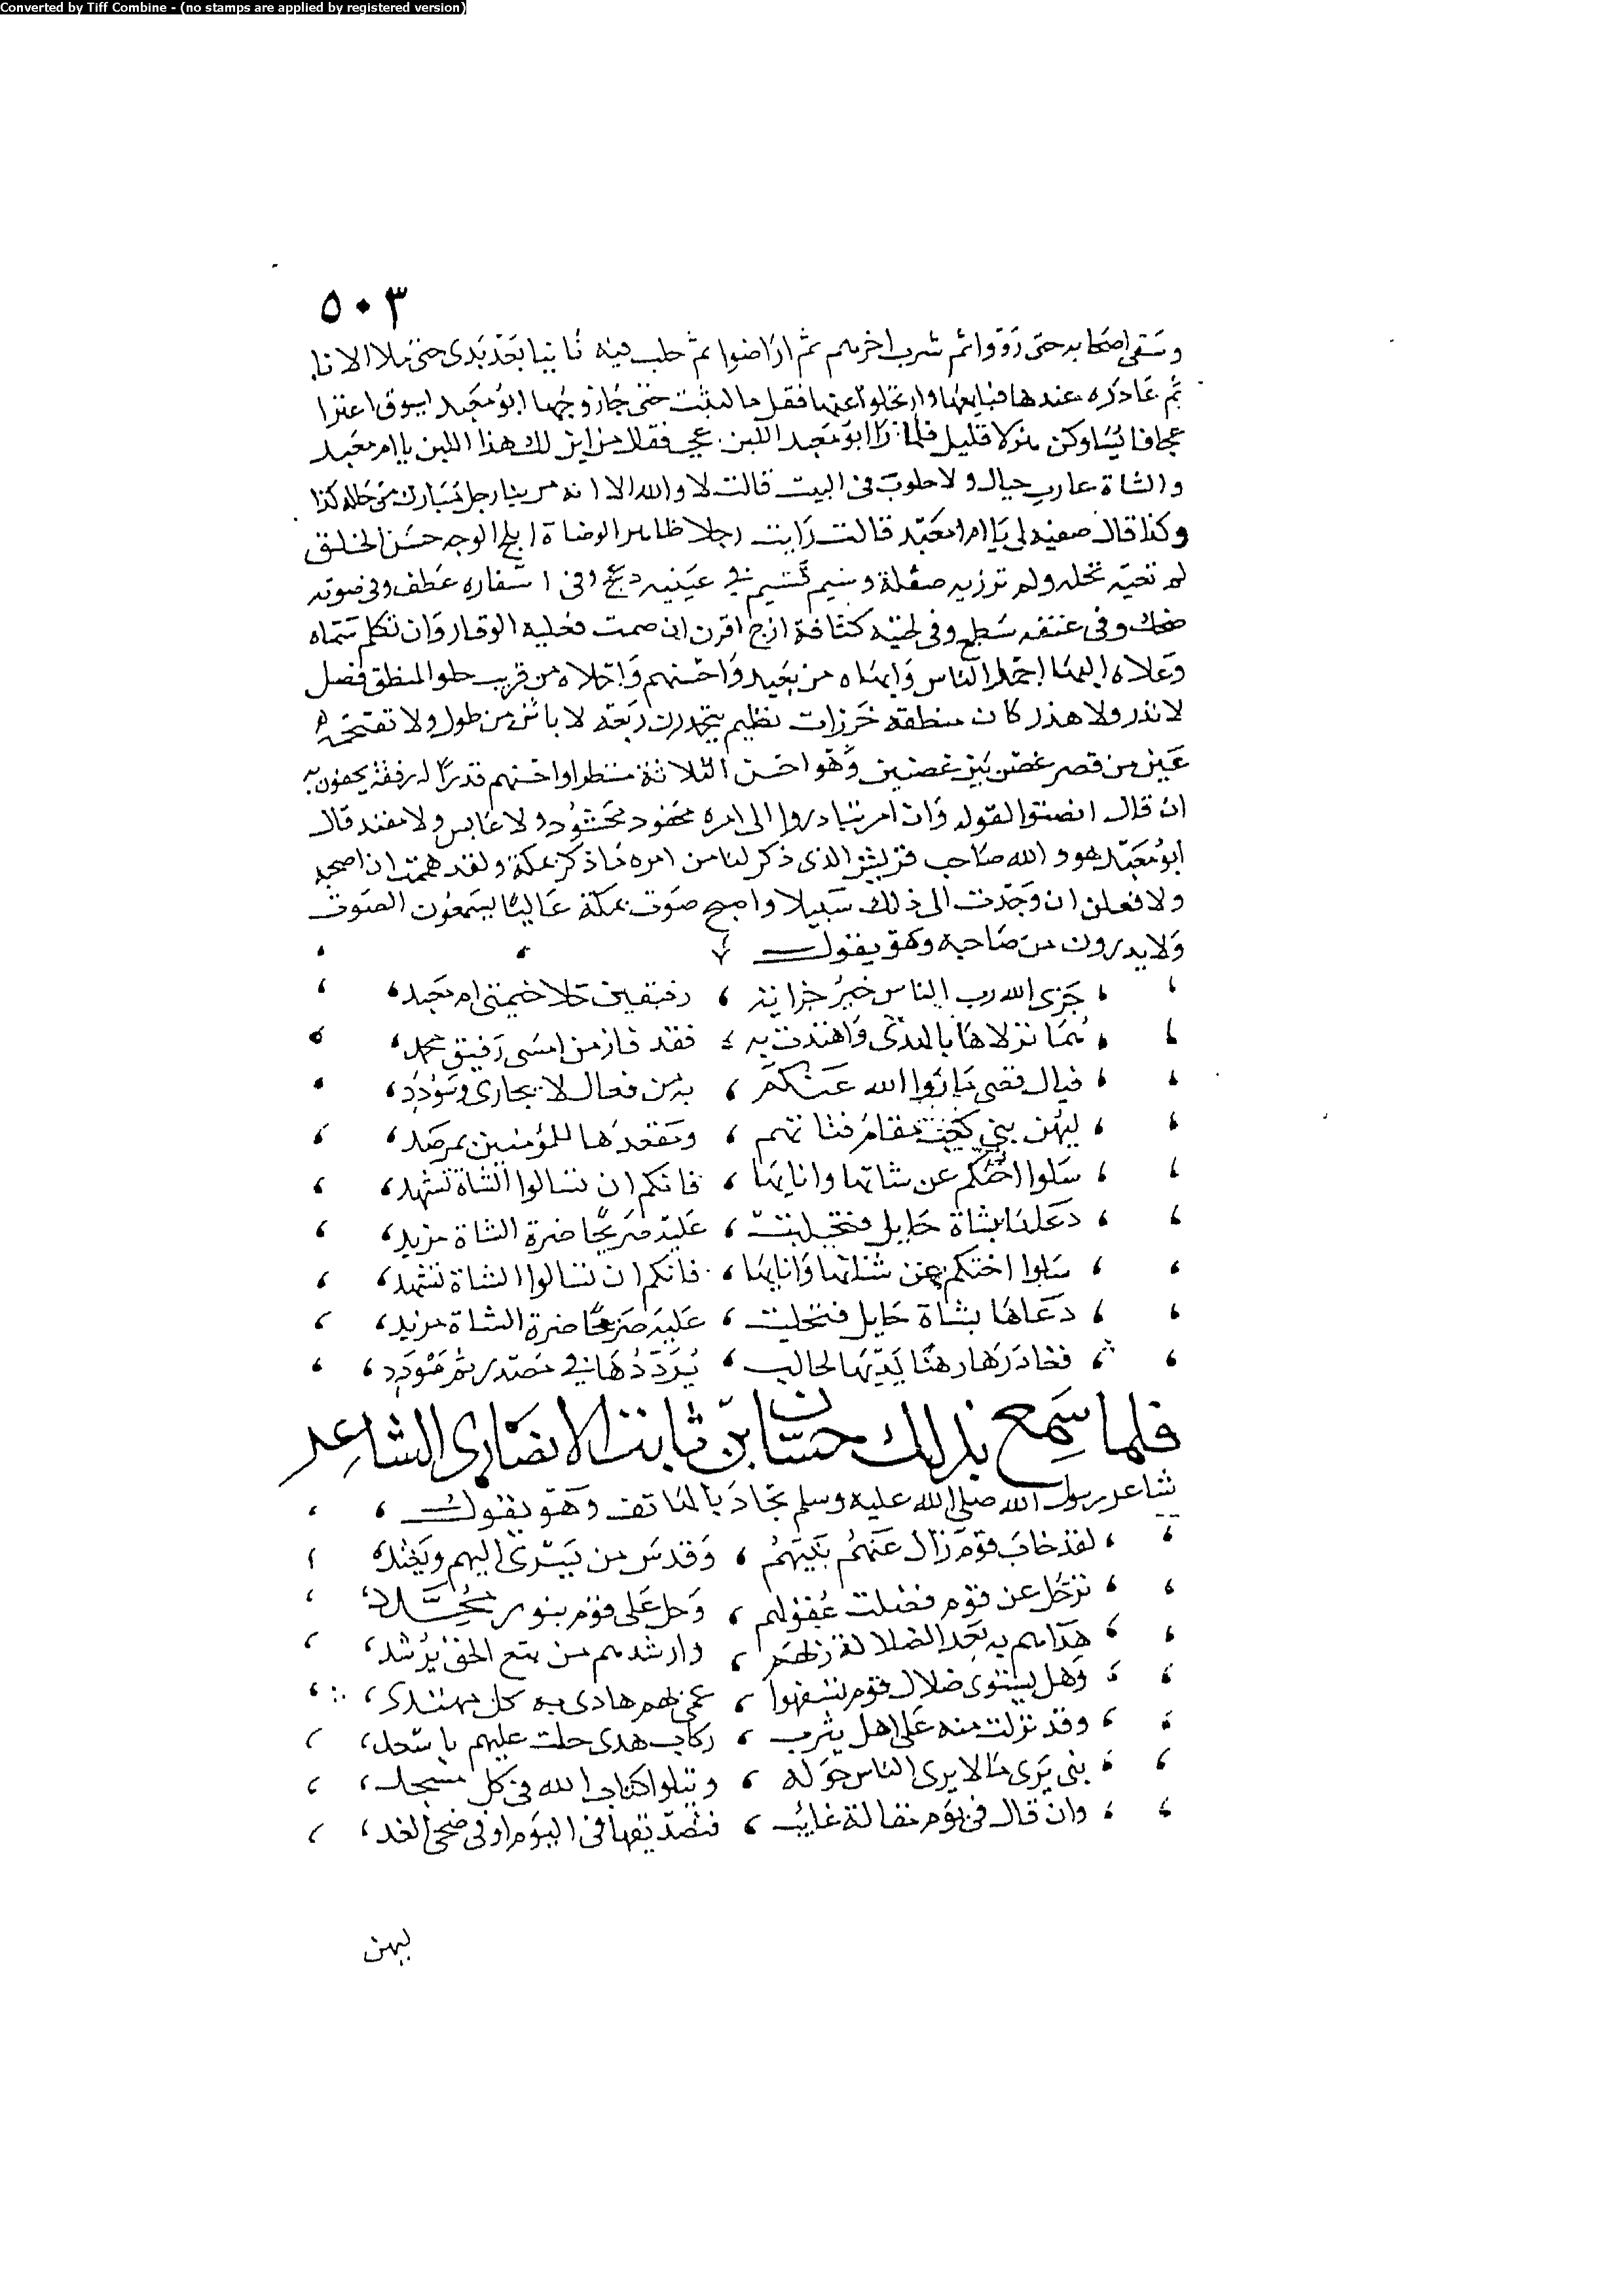 Converted by Tiff Combine - (no stamps are applied by registered version)
٥٠٣
وسقى اصحابه حتى رووا ثم شرب اخرهم ثم اراضوا ثم حلب فيه ثانيا بعد بدى حتى ملا الانا
ثم غادره عندها فبايعها وارتحلوا عنها فقل ما لبثت حتى جا زوجها ابو معبد يسوق اعنزا
عجافا يتساوكن هزلا قليل فلما را ابو معبد اللبن عجب فقال من اين لك هذا اللبن يا ام معبد
والشاة عارب حيال ولا حلوب فى البيت قالت لا والله الا انه مر بنا رجل مبارك من حاله كذا
وكذا قال صفيه لى يا ام معبد قالت رايت رجلا ظاهر الوضاة ابلج الوجه حسن الخلق
لم تعبه نحله ولم تزريه صقلة وسيم قسيم فى عينيه دعج وفى اشفاره عطف وفى صوته
صحل وفى عنقه سطع وفى لحيته كثافة ازج اقرن ان صمت فعليه الوقار وان تكلم سماه
وعلاه البها اجمل الناس وابهاه من بعيد واحسنهم واحلاه من قريب حلو المنطق فصل
لا نذر ولا هذر كان منطقه خرزات نظيم يتحدرن ربعة لا بائن من طول ولا تقتحمه
عين من قصر غصن بين غصنين وهو احسن الثلاثة منظرا واحسنهم قدرا له رفقة يحفون به
ان قال انصتوا لقوله وان امر تبادروا الى امره محفود محشود ولا عابس ولا مفند قال
ابو معبد هو والله صاحب قريش الذى ذكر لنا من امره ما ذكر بمكة ولقد هممت ان اصحبه
ولافعلن ان وجدت الى ذلك سبيلا واصبح صوت بمكة عاليا يسمعون الصوت
ولا يدرون من صاحبه وهو يقول
جزى الله رب الناس خير جزايه ، رفيقين حلا خيمتى ام معبد
هما نزلاها بالهدى واهتدت به ، فقد فاز من امسى رفيق محمد
فيال قصى ما زوا الله عنكم ، به من فعال لا يجارى وسؤدد
ليهن بنى كعب مقام فتاتهم ، ومقعدها للمؤمنين بمرصد
سلوا اختكم عن شاتها وانايها ، فانكم ان تسالوا الشاة تشهد
دعاها بشاة حايل فتحلبت ، عليه صريحا ضرة الشاة مزبد
سلوا اختكم عن شاتها وانايها ، فانكم ان تسالوا الشاة تشهد
دعاها بشاة حايل فتحلبت ، عليه صريحا ضرة الشاة مزبد
فغادرها رهنا لديها لحالب ، يرددها فى مصدر ثم مورد
فلما سمع بذلك حسان بن ثابت الانصارى الشاعر
شاعر رسول الله صلى الله عليه وسلم تجاذبا لهاتف وهو يقول
لقد خاب قوم زال عنهم نبيهم ، وقدس من يسرى اليهم ويغتد
ترحل عن قوم فضلت عقولهم ، وحل على قوم بنور مجدد
هداهم به بعد الضلالة ربهم ، وارشدهم من يتبع الحق يرشد
وهل يستوى ضلال قوم تسفهوا ، عمى بهم هادى به كل مهتدى
وقد نزلت منه على اهل يثرب ، ركاب هدى حلت عليهم باسعد
نبى يرى مالا يرى الناس حوله ، ويتلوا كتاب الله فى كل مسجد
وان قال فى يوم مقالة غايب ، فتصديقها فى اليوم او فى ضحى الغد
ليهن